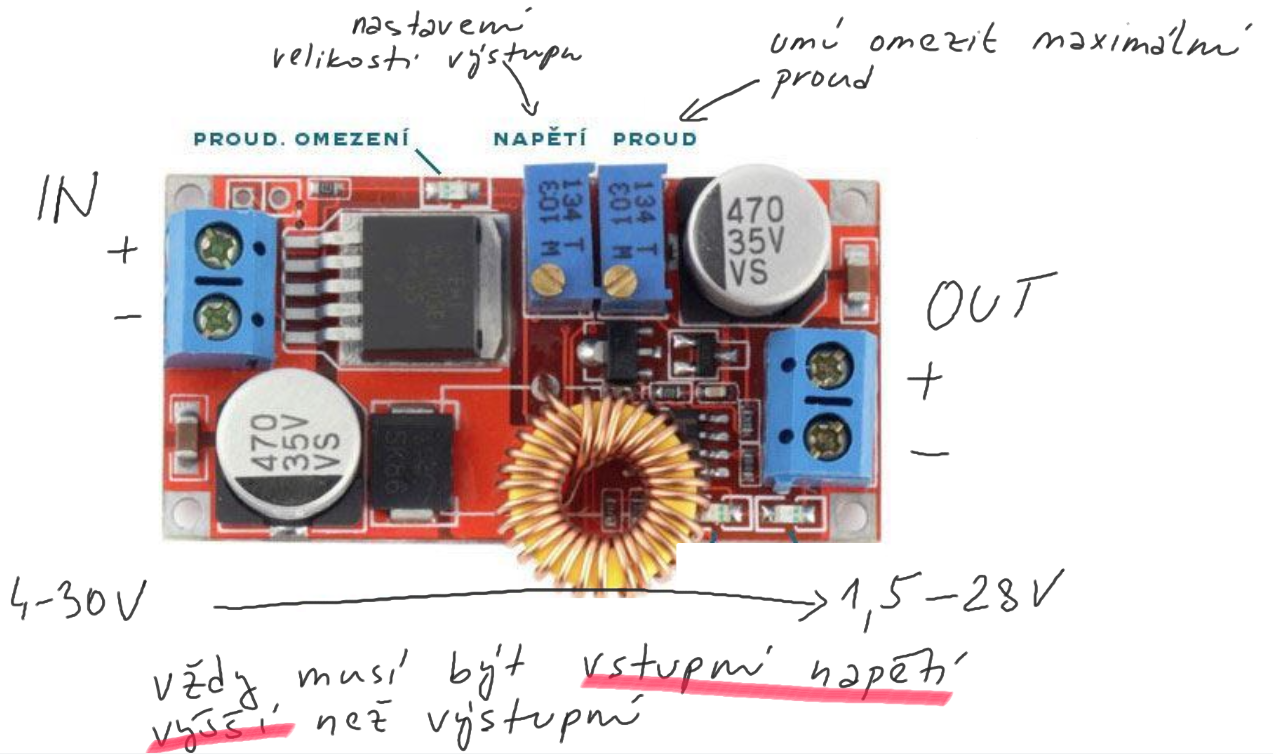 nastavení
velikosti výstupu
umí omezit maximální
proud
PROUD. OMEZENÍ
NAPĚTÍ PROUD
IN
+
-
134 T
103 M
134 T
103 M
470
35V
VS
OUT
+
-
470
35V
VS
SK86
4-30V
1,5-28V
vždy musí být vstupní napětí
vyšší než výstupní